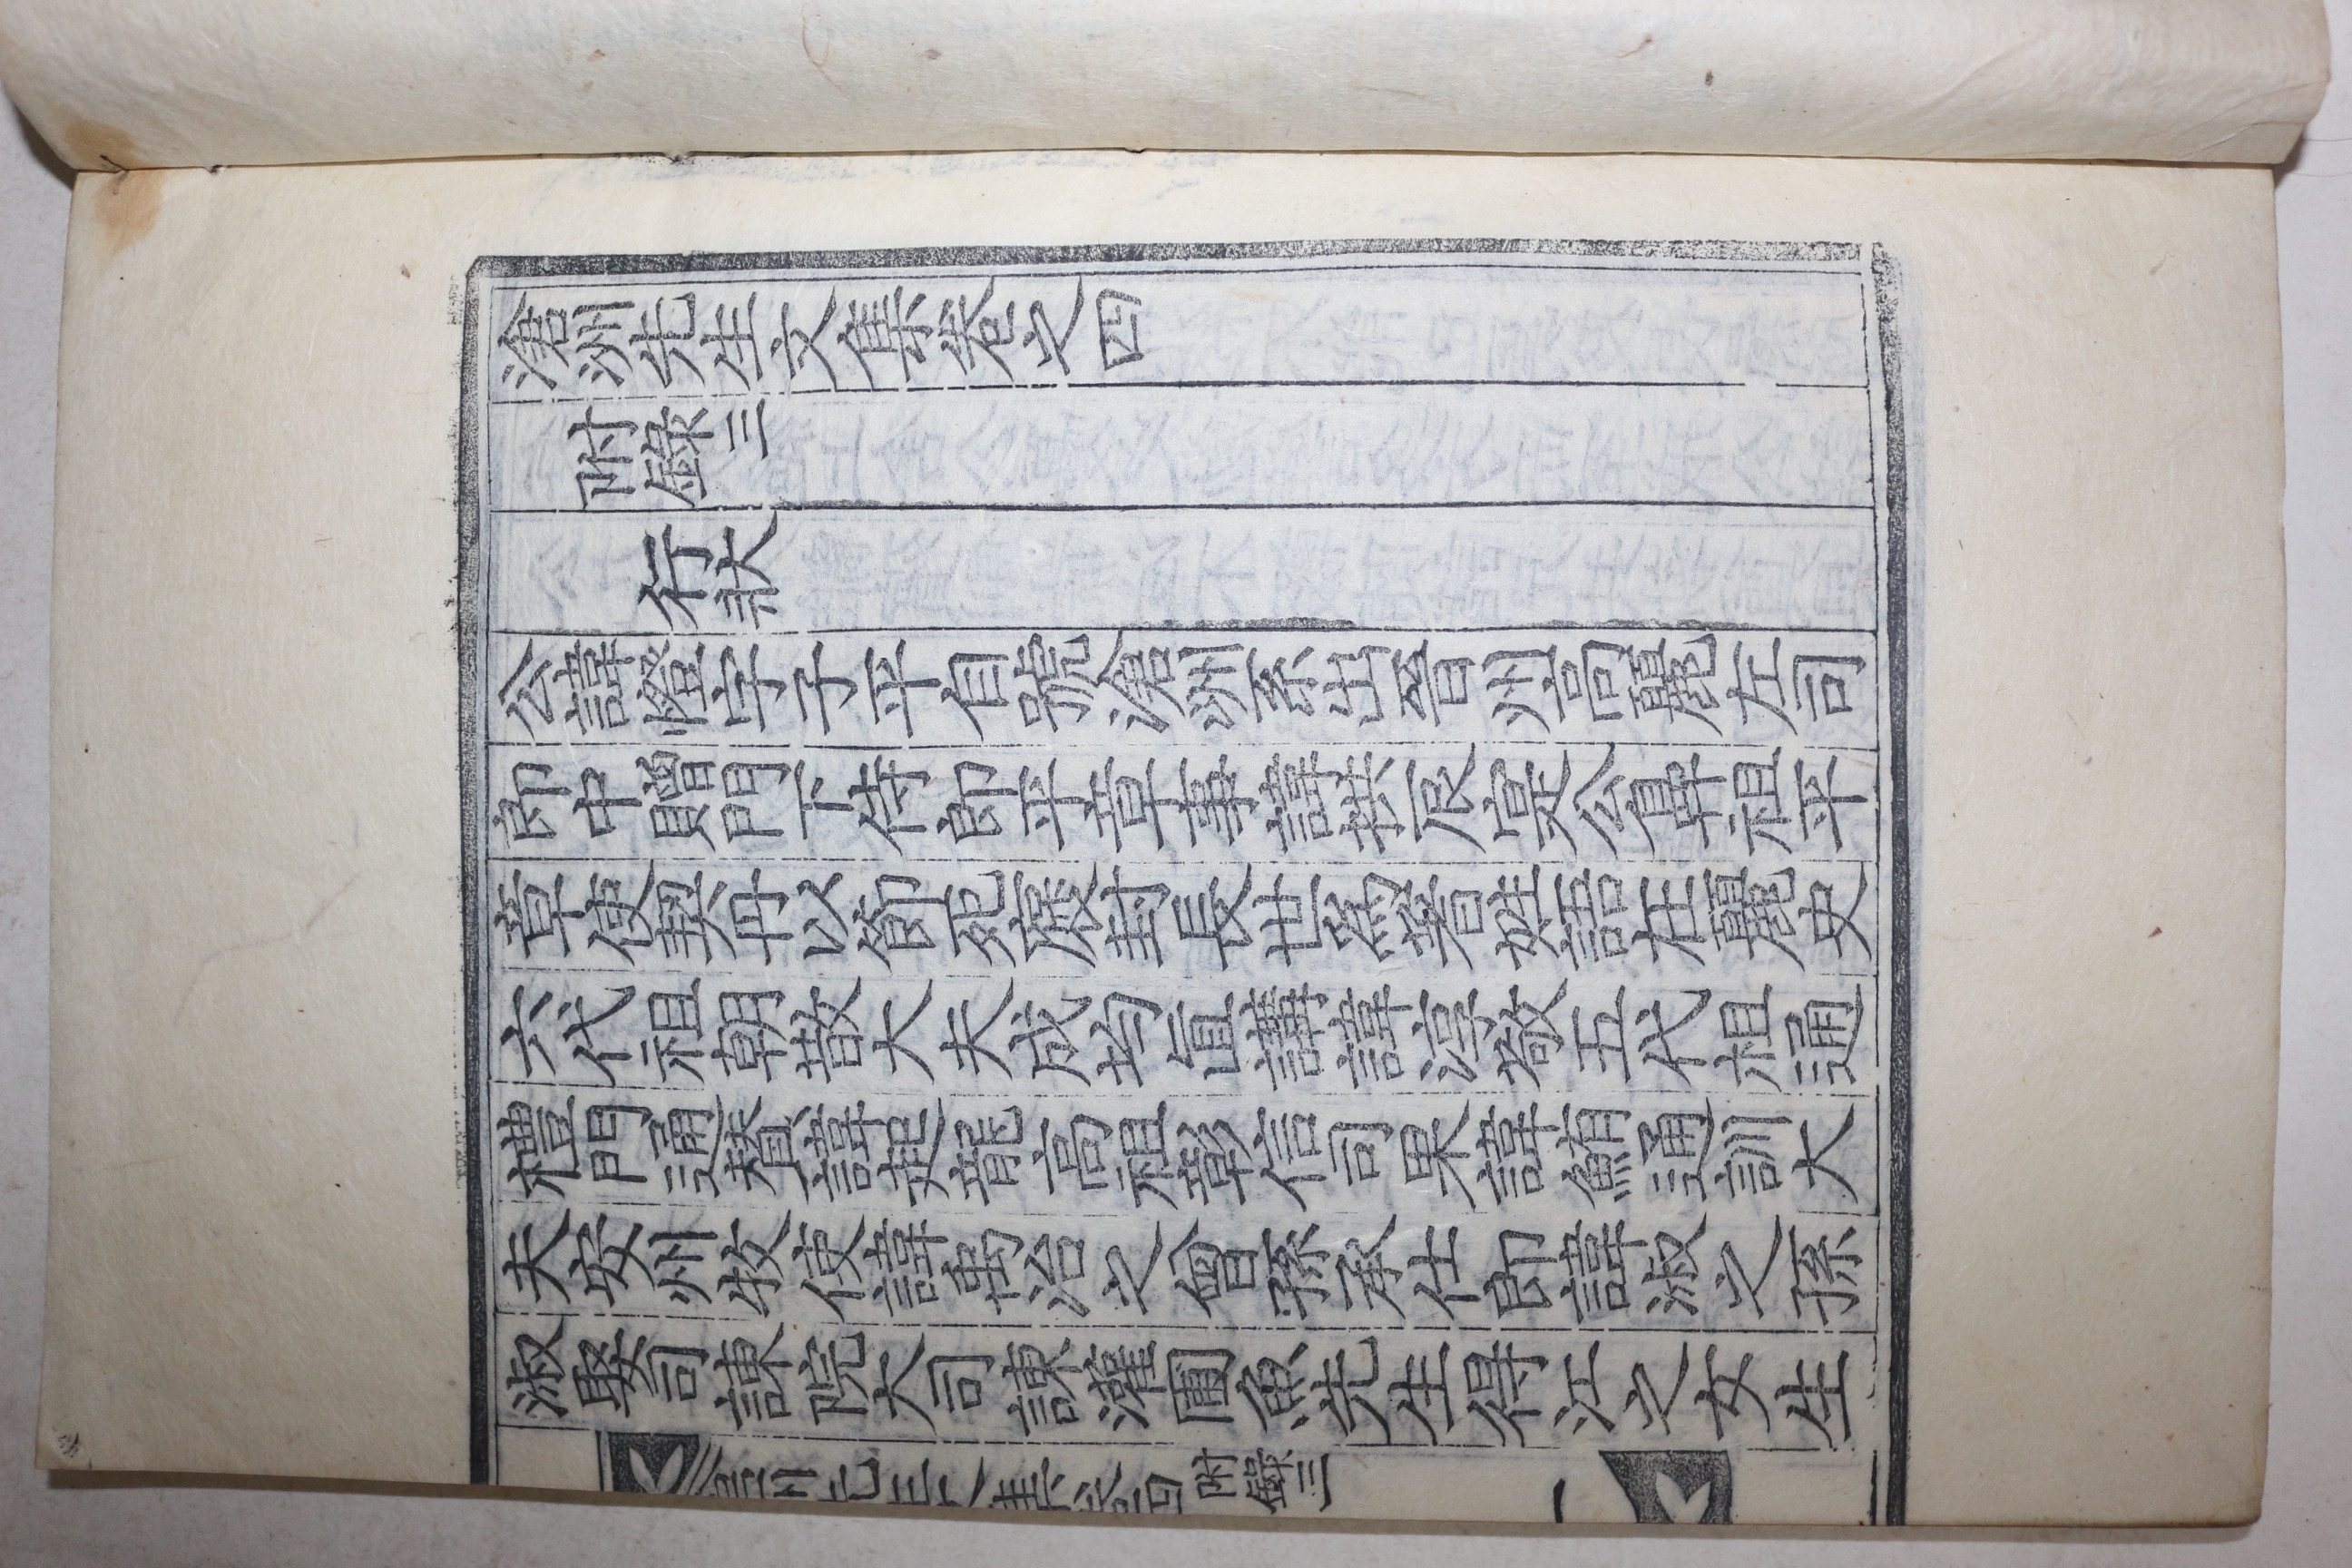 滄洲先生文集卷之四
附錄三
行狀
公諱憕字子平自號滄洲系出晉州高麗左司
郎中贈門下侍郎平章事諱拱辰寔公鼻祖平
章使契丹以節死褒封長世爲著姓語在麗史
六代祖朝散大夫成均直講諱淳敬五代祖通
禮門通贊諱起龍高祖彰信司果諱鯖通訓大
夫安州牧使諱禹治之曾孫承仕郎諱淑之孫
淑娶司諫院大司諫灌圃魚先生得江之女生
附錄三